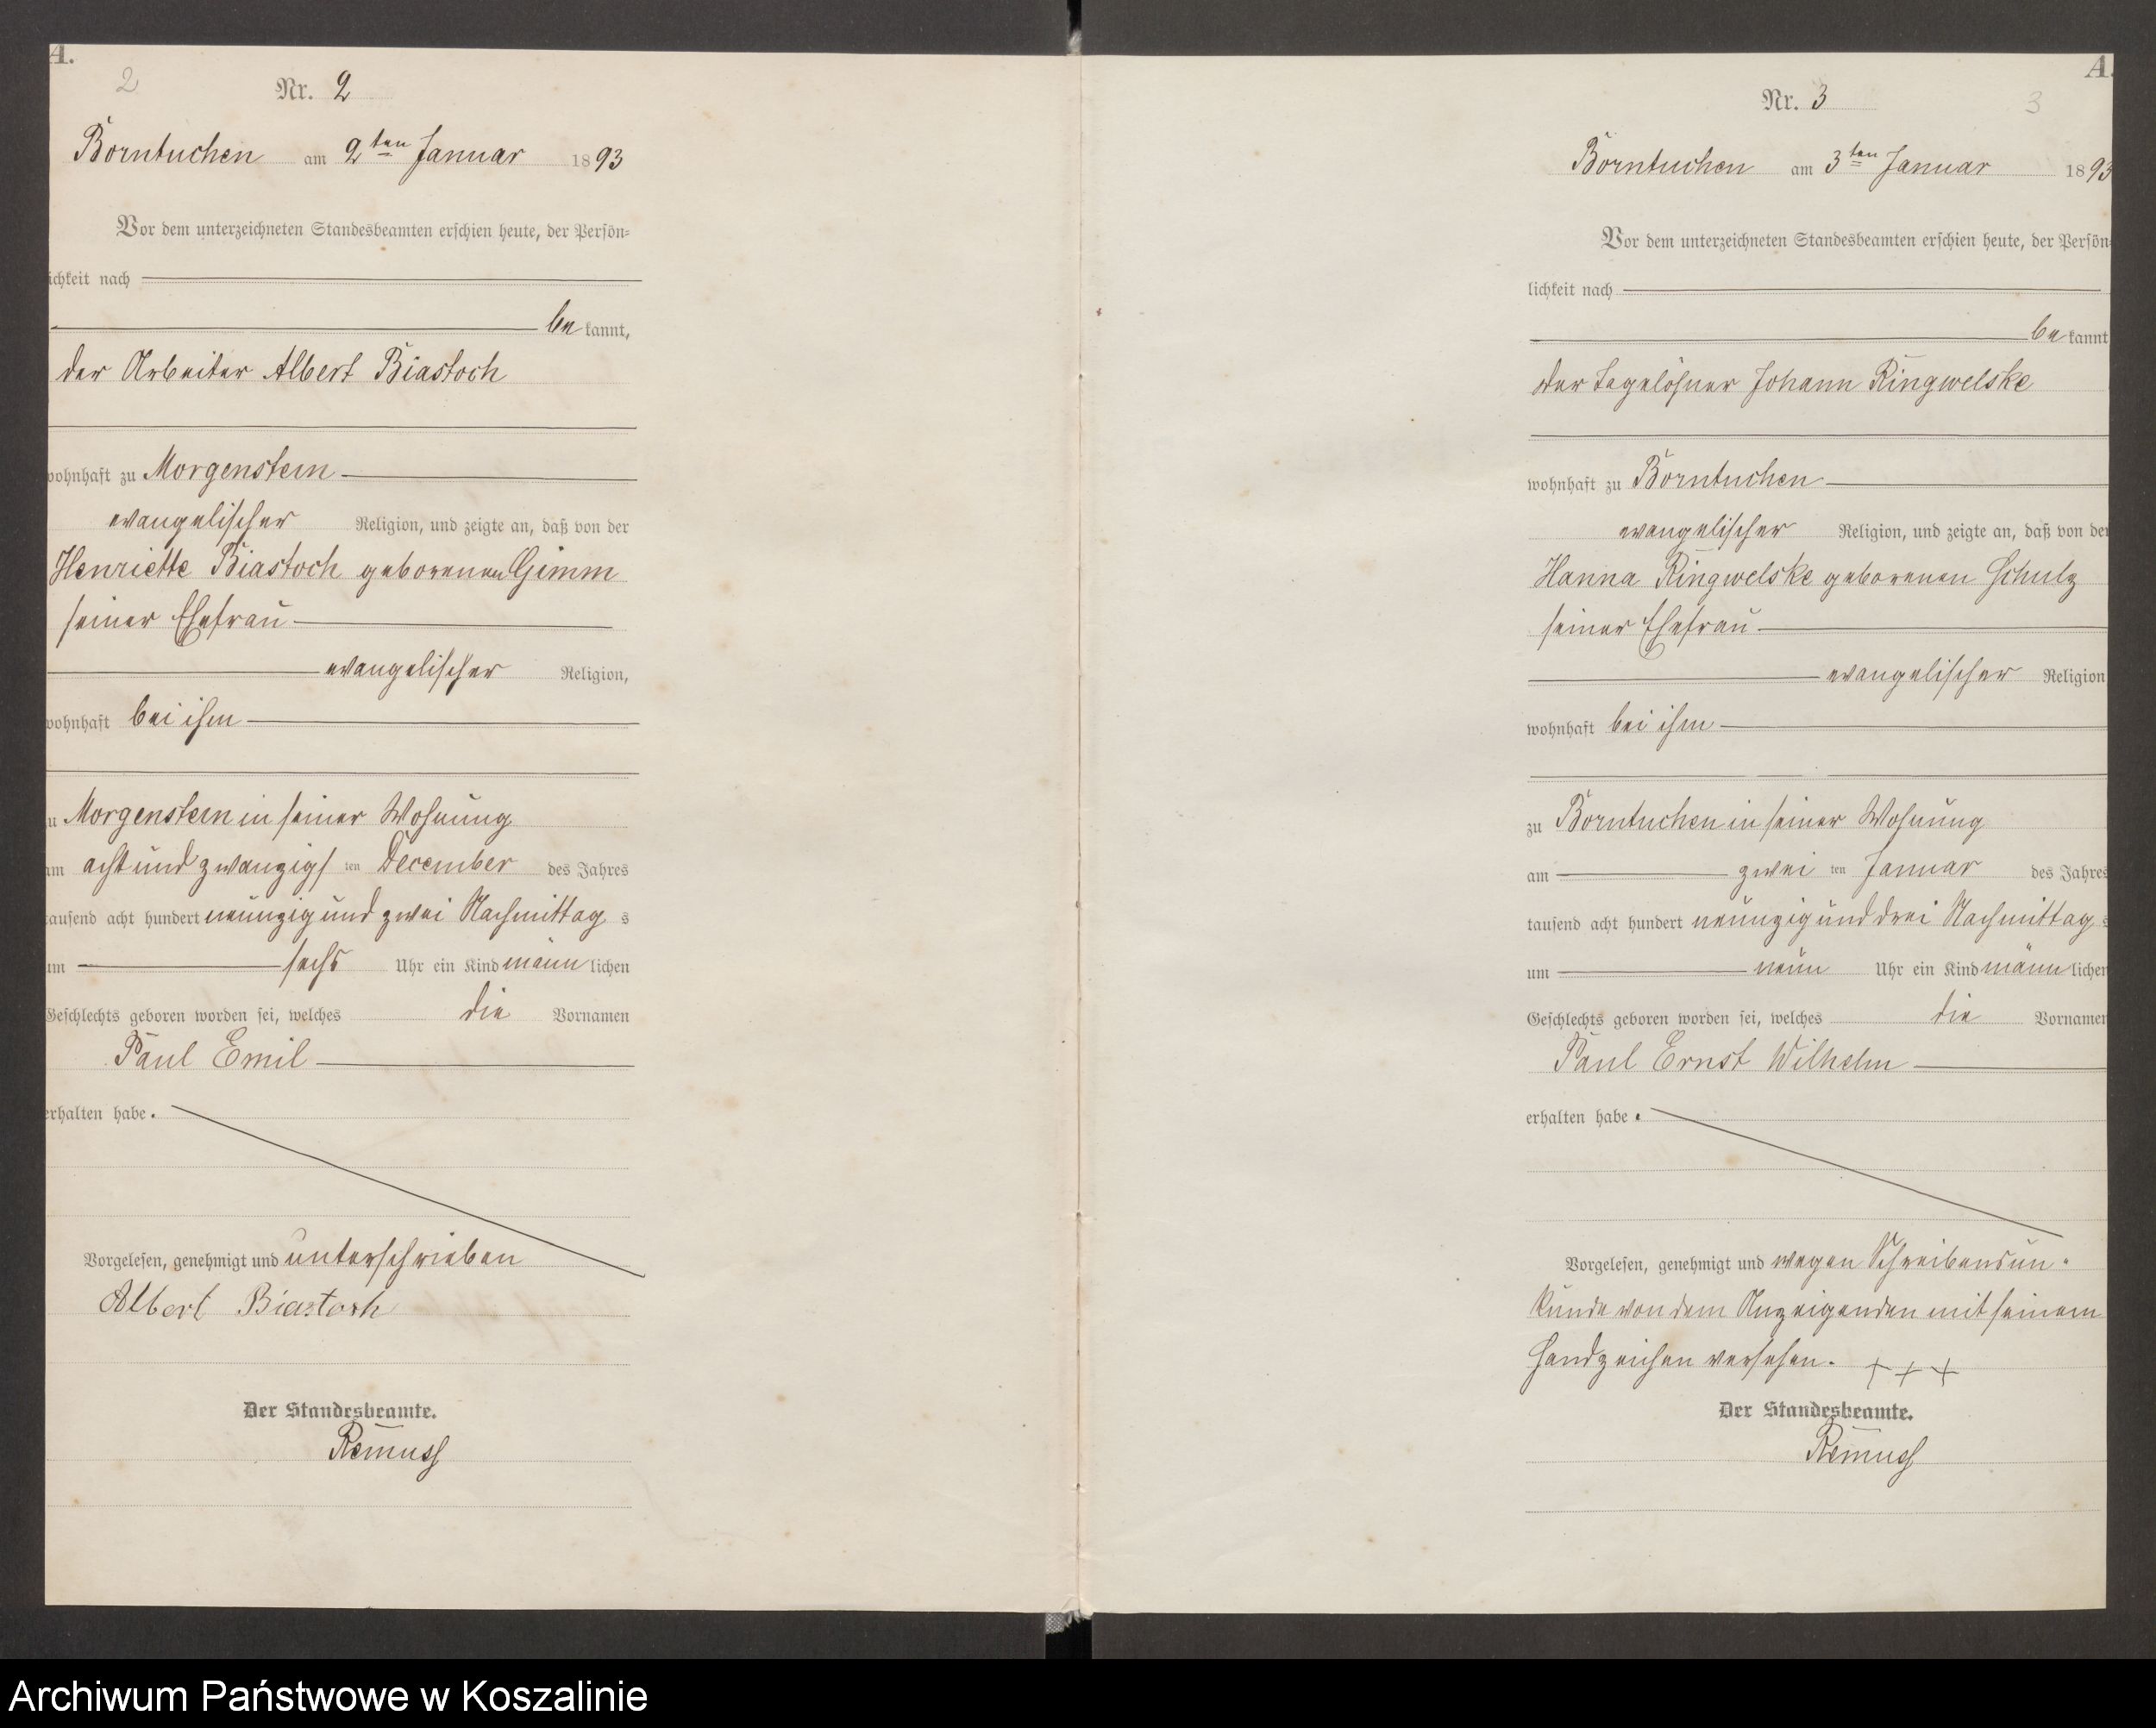 A.
2
Nr. 2
Borntuchen am 2ten Januar 1893
Vor dem unterzeichneten Standesbeamten erschien heute, der Persön=
ichkeit nach
be kannt,
der Arbeiter Albert Biastoch
wohnhaft zu Morgenstern
evangelischer Religion, und zeigte an, daß von der
Henriette Biastoch geborenen Gimm
seiner Ehefrau
evangelischer Religion,
wohnhaft bei ihm
zu Morgenstern in seiner Wohnung
am achtundzwanzigs ten December des Jahres
tausend acht hundert neunzig und zwei Nachmittag s
um sechs Uhr ein Kind männ lichen
Geschlechts geboren worden sei, welches die Vornamen
Paul Emil
erhalten habe.
Vorgelesen, genehmigt und unterschrieben
Albert Biastoch
Der Standesbeamte.
Remuss
A.
Nr. 3
3
Borntuchen am 3ten Januar 1893
Vor dem unterzeichneten Standesbeamten erschien heute, der Persön=
lichkeit nach
be kannt
der Tagelöhner Johann Ringwelske
wohnhaft zu Borntuchen
evangelischer Religion, und zeigte an, daß von der
Hanna Ringwelske geborenen Schulz
seiner Ehefrau
evangelischer Religion
wohnhaft bei ihm
zu Borntuchen in seiner Wohnung
am zwei ten Januar des Jahres
tausend acht hundert neunzig und drei Nachmittag s
um neun Uhr ein Kind männ lichen
Geschlechts geboren worden sei, welches die Vornamen
Paul Ernst Wilhelm
erhalten habe.
Vorgelesen, genehmigt und wegen Schreibensun=
kunde von dem Anzeigenden mit seinem
Handzeichen versehen. + + +
Der Standesbeamte.
Remuss
Archiwum Państwowe w Koszalinie